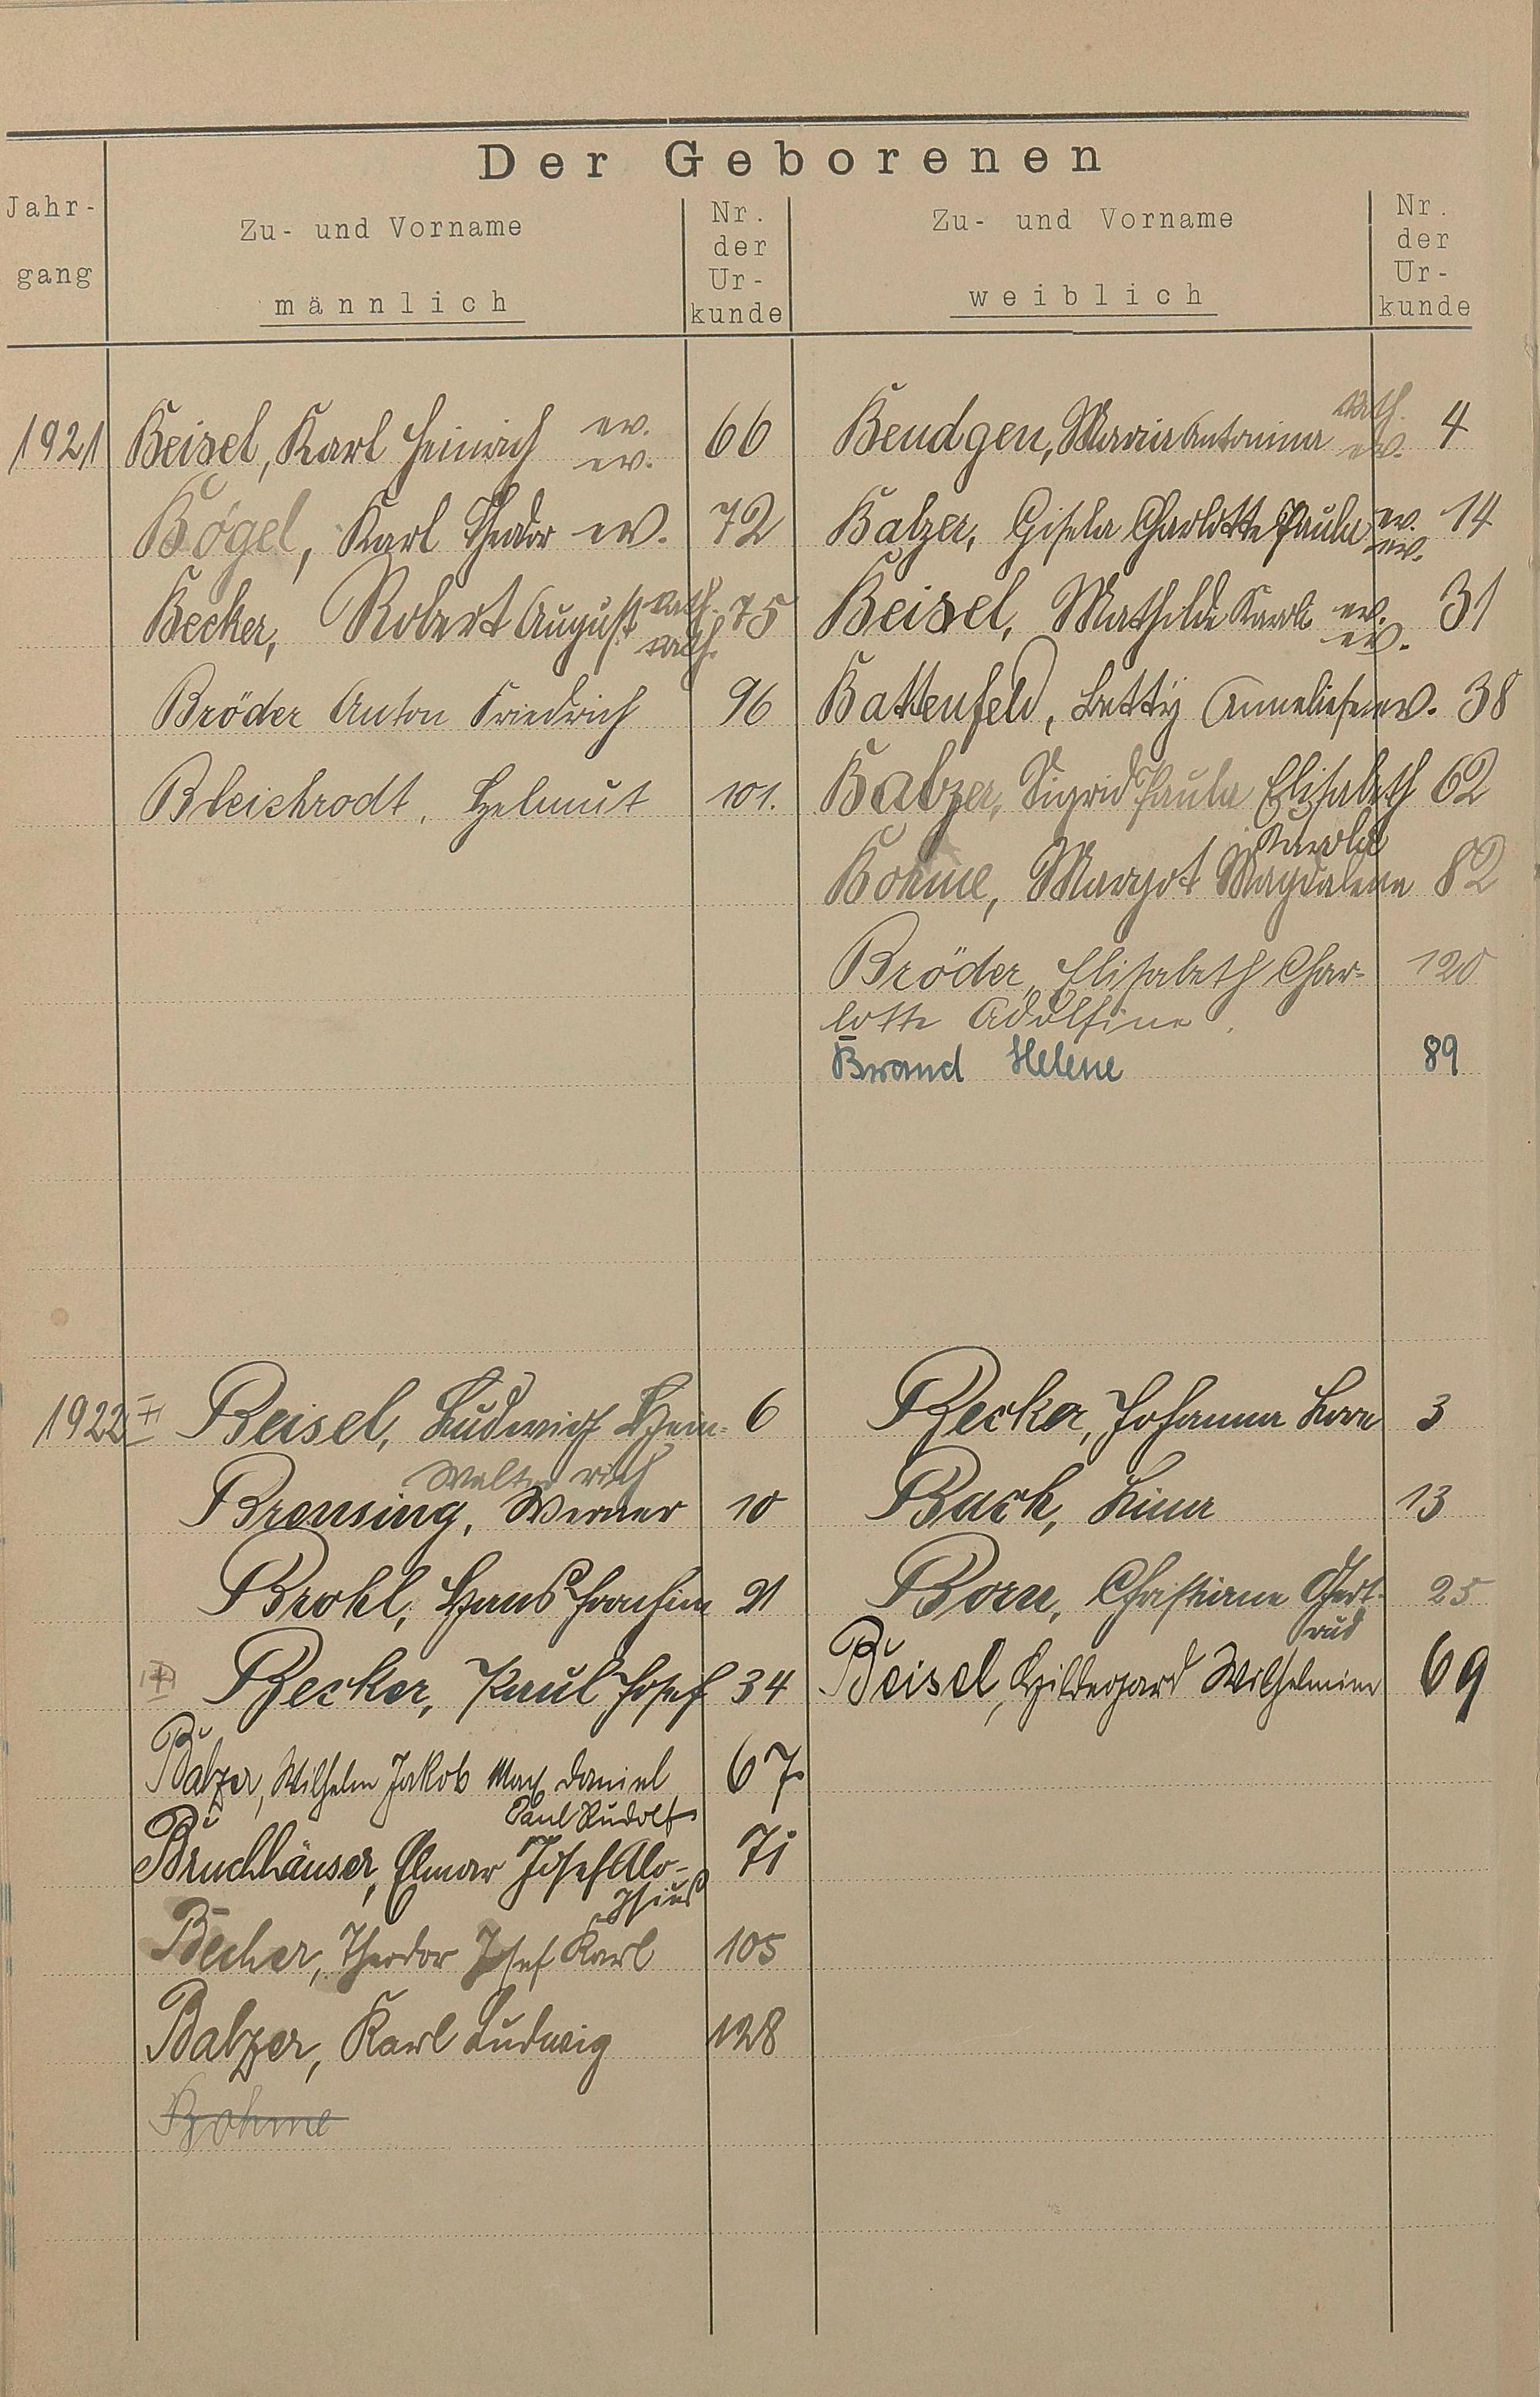 Der Geborenen
Jahr-
gang
Zu- und Vorname
männlich
Nr.
der
Ur-
kunde
Zu- und Vorname
weiblich
Nr.
der
Ur-
kunde
1921 Beisel, Karl Heinrich ev. ev. 66 Bendgen, Maria Antonina kath. ev. 4
Bögel, Karl Theodor ev. 72 Balzer, Gisela Charlotte Paula ev. ev. 14
Becker, Robert August kath. kath. 75 Beisel, Mathilde Karola ev. ev. 31
Bröder Anton Friedrich 96 Battenfeld, Betty Anneliese ev. 38
Bleichrodt, Helmut 101. Balzer, Sigrid Paula Elisabeth 62
Karola
Böhme, Margot Magdalena 82
Bröder, Elisabeth Char- 120
lotte Adolfine.
Brand Helene 89
1922 Beisel, Ludwig Hein- 6 Becker, Johanna 3
Walter rich
Brensing, Werner 10 Bach, 13
Brohl, Hans Joachim 21 Born, Christiane Gert- 25
rud
Becker, Paul Josef 34 Beisel, Hildegard Wilhelmine 69
Balzer, Wilhelm Jakob Max Daniel 67
Paul Rudolf
Bruchhäuser, Elmar Josef Alo- 71
ysius
Becher, Theodor Josef Karl 105
Balzer, Karl Ludwig 128
Böhme